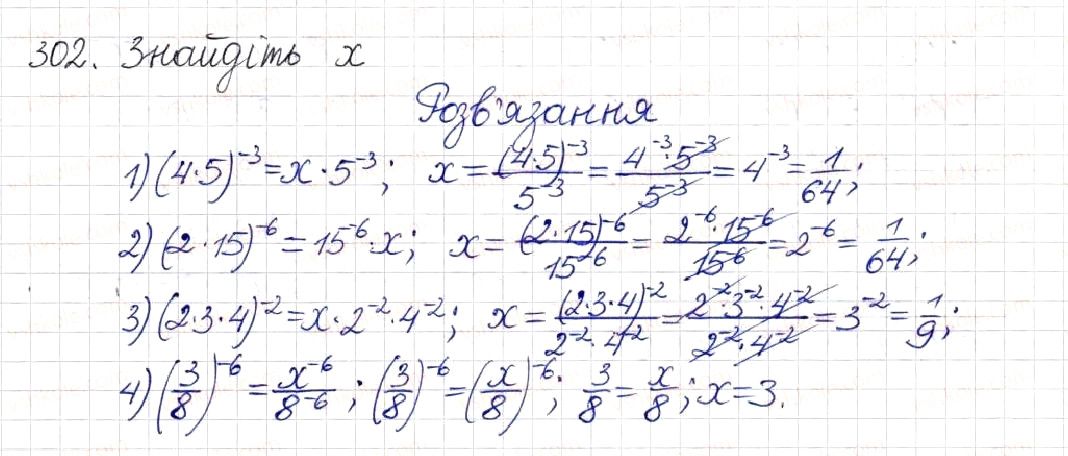 302. Знайдіть x
Розв'язання
1) (4·5)⁻³=x·5⁻³; x=(4·5)⁻³/5⁻³=4⁻³·5⁻³/5⁻³=4⁻³=1/64;
2) (2·15)⁻⁶=15⁻⁶·x; x=(2·15)⁻⁶/15⁻⁶=2⁻⁶·15⁻⁶/15⁻⁶=2⁻⁶=1/64;
3) (2·3·4)⁻²=x·2⁻²·4⁻²; x=(2·3·4)⁻²/2⁻²·4⁻²=2⁻²·3⁻²·4⁻²/2⁻²·4⁻²=3⁻²=1/9;
4) (3/8)⁻⁶=x⁻⁶/8⁻⁶; (3/8)⁻⁶=(x/8)⁻⁶; 3/8=x/8; x=3.